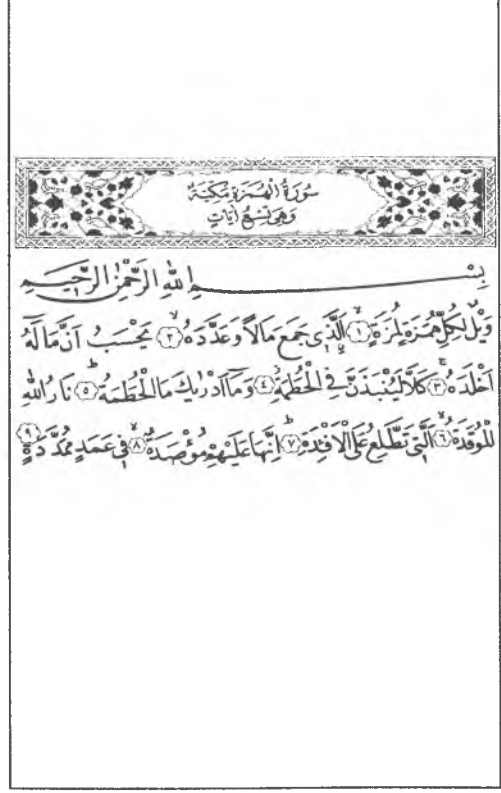 سُورَةُ الْهُمَزَةِ مَكِّيَّةٌ
وَهِيَ تِسْعُ اٰيَاتٍ
بِسْمِ اللّٰهِ الرَّحْمٰنِ الرَّحِيمِ
وَيْلٌ لِكُلِّ هُمَزَةٍ لُمَزَةٍۙ ﴿١﴾ اَلَّذِى جَمَعَ مَالًا وَعَدَّدَهُۙ ﴿٢﴾ يَحْسَبُ اَنَّ مَالَهُٓ
اَخْلَدَهُۚ ﴿٣﴾ كَلَّا لَيُنْبَذَنَّ فِى الْحُطَمَةِۘ ﴿٤﴾ وَمَٓا اَدْرٰيكَ مَا الْحُطَمَةُۜ ﴿٥﴾ نَارُ اللّٰهِ
الْمُوقَدَةُۙ ﴿٦﴾ اَلَّتِى تَطَّلِعُ عَلَى الْاَفْـِٔدَةِۜ ﴿٧﴾ اِنَّهَا عَلَيْهِمْ مُؤْصَدَةٌۙ ﴿٨﴾ فِى عَمَدٍ مُمَدَّدَةٍ ﴿٩﴾